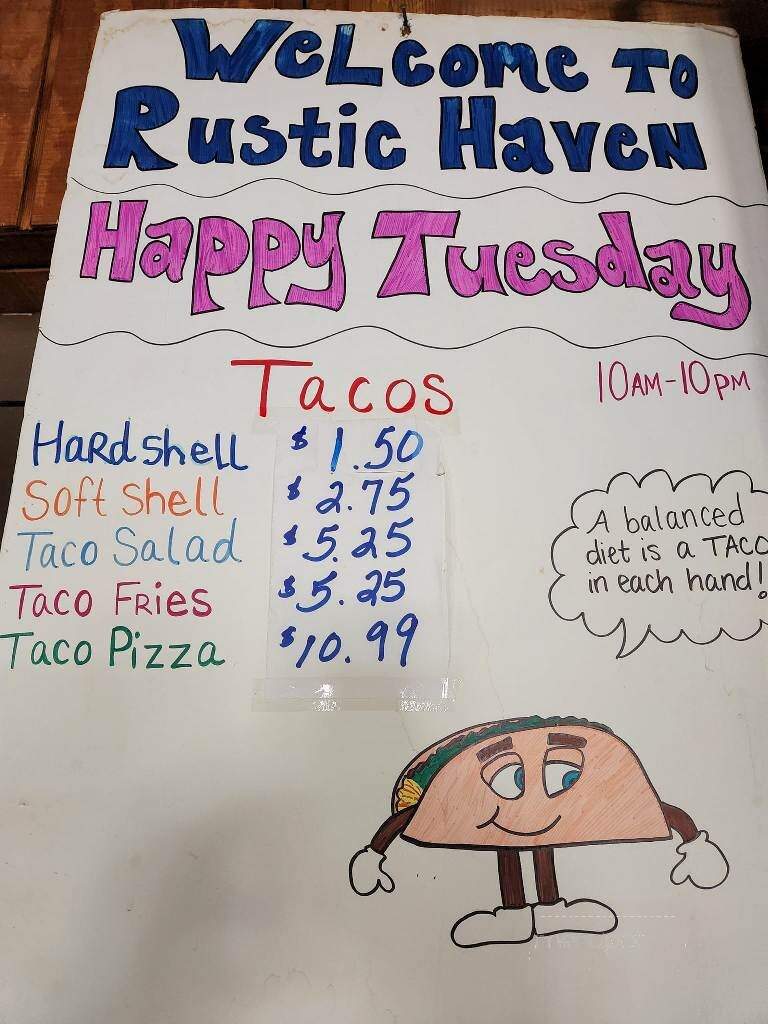 Welcome to
Rustic Haven
Happy Tuesday
Tacos
10AM-10PM
Hard shell $1.50
Soft Shell $2.75
Taco Salad $5.25
Taco Fries $5.25
Taco Pizza $10.99
A balanced
diet is a TACO
in each hand!